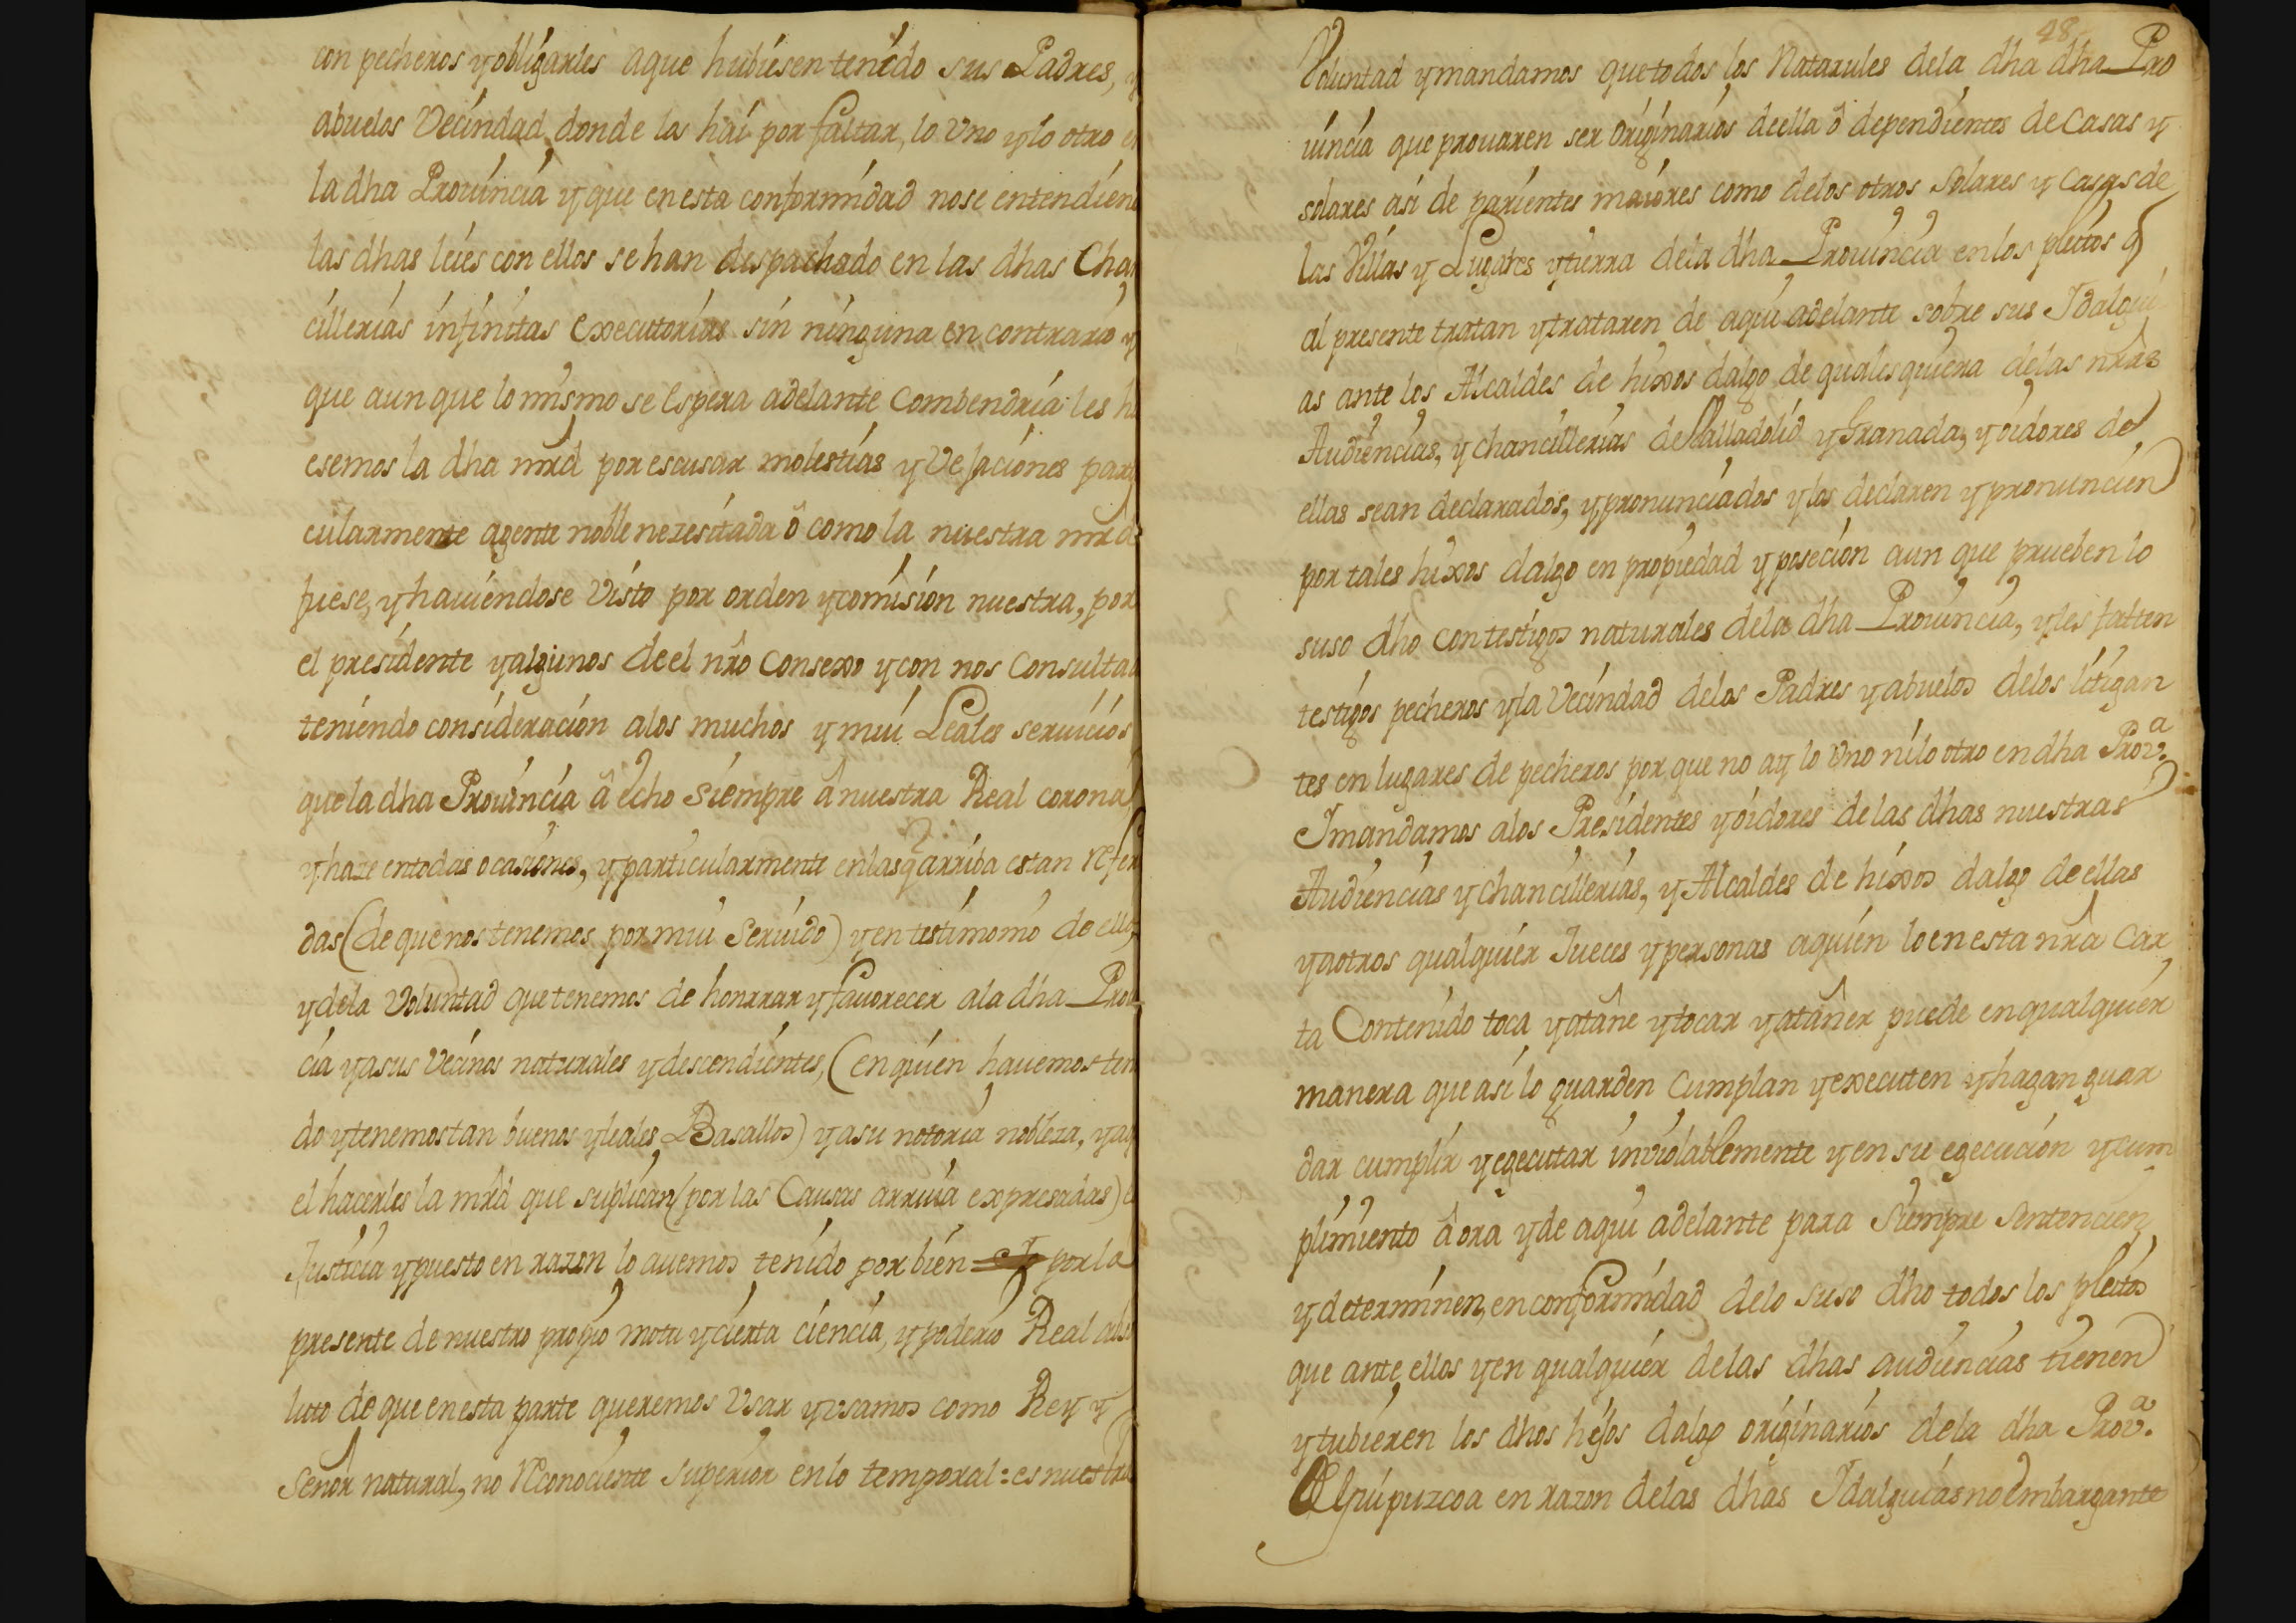 con pecheros y obligarles aque hubiesen tenido sus Padres, y
abuelos Vecindad donde los hai por faltar, lo Uno y lo otro en
la dha Provincia y que en esta conformidad no se entendien
las dhas leies con ellos se han despachado en las dhas Chan
cillerias infinitas executorias sin ninguna en contrario y
que aun que lo mismo se espera adelante Combendria les hi
esemos la dha mrd por escusar molestias y Vejaciones parti
cularmente agente noble nezesitada ô como la nuestra mrd
fuese, y haviendose Visto por orden y comision nuestra, por
el presidente y algunos de el nrô Consexo y con nos Consultad
teniendo consideracion alos muchos y mui Leales servicios
que la dha Provincia â echo siempre â nuestra Real corona
y haze en todas ocasiones, y particularmente en las q arriba estan refer
das (de que nos tenemos por mui Servido) y en testimonio de ello,
y dela Voluntad que tenemos de honrrar y favorecer ala dha Prov
cia y asus Vecinos naturales y descendientes, (en quien havemos ten
do y tenemos tan buenos y leales Basallos) y asu notoria nobleza, y aq
el hacerles la mrd que suplican (por las Causas arriva expresadas) e
Justicia y puesto en razon lo avemos tenido por bien por la
presente de nuestro propio motu y cierta ciencia, y poderio Real abso
luto de que en esta parte queremos Usar y usamos como Rey y
Señor natural, no reconociente Superior en lo temporal: es nuestra
48
Voluntad y mandamos que todos los Natarules dela dha dha Pro
vincia que provaren ser Originarios de ella ô dependientes de Casas y
solares asi de parientes maiores como delos otros Solares y Casas de
las Villas y Lugares y tierra dela dha Provincia en los pleitos q
al presente tratan y trataren de aqui adelante sobre sus Idalgui
as ante los Alcaldes de hixos dalgo de quales quiera delas nrâs
Audiencias, y chancillerias de Valladolid y Granada, y oidores de
ellas sean declarados, y pronunciados y los declaren y pronuncien
por tales hixos dalgo en propiedad y posecion aun que prueben lo
suso dho con testigos naturales dela dha Provincia, y les falten
testigos pecheros y la Vecindad delos Padres y abuelos delos litigan
tes en lugares de pecheros por que no ay lo Uno ni lo otro en dha Prov.ª
I mandamos alos Presidentes y oidores delas dhas nuestras
Audiencias y chancillerias, y Alcaldes de hixos dalgo de ellas
y aotros qualquier Jueces y personas aquien lo en esta nrâ Car
ta Contenido toca y atañe y tocar y atañer puede en qualquier
manera que asi lo guarden Cumplan y executen y hagan guar
dar cumplir y egecutar inviolablemente y en su egecucion y cum
plimiento âora y de aqui adelante para Siempre Sentencien
y determinen, en conformidad delo suso dho todos los pleitos
que ante ellos y en qualquier delas dhas audiencias tienen
y tubieren los dhos hijos dalgo originarios dela dha Prov.ª
de Guipuzcoa en razon delas dhas Idalguias no embargante